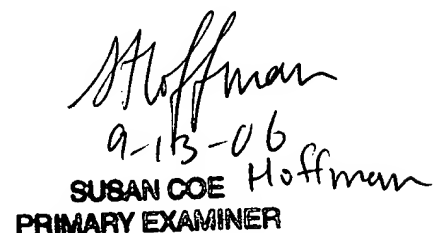 SHoffman
9-13-06
SUSAN COE Hoffman
PRIMARY EXAMINER